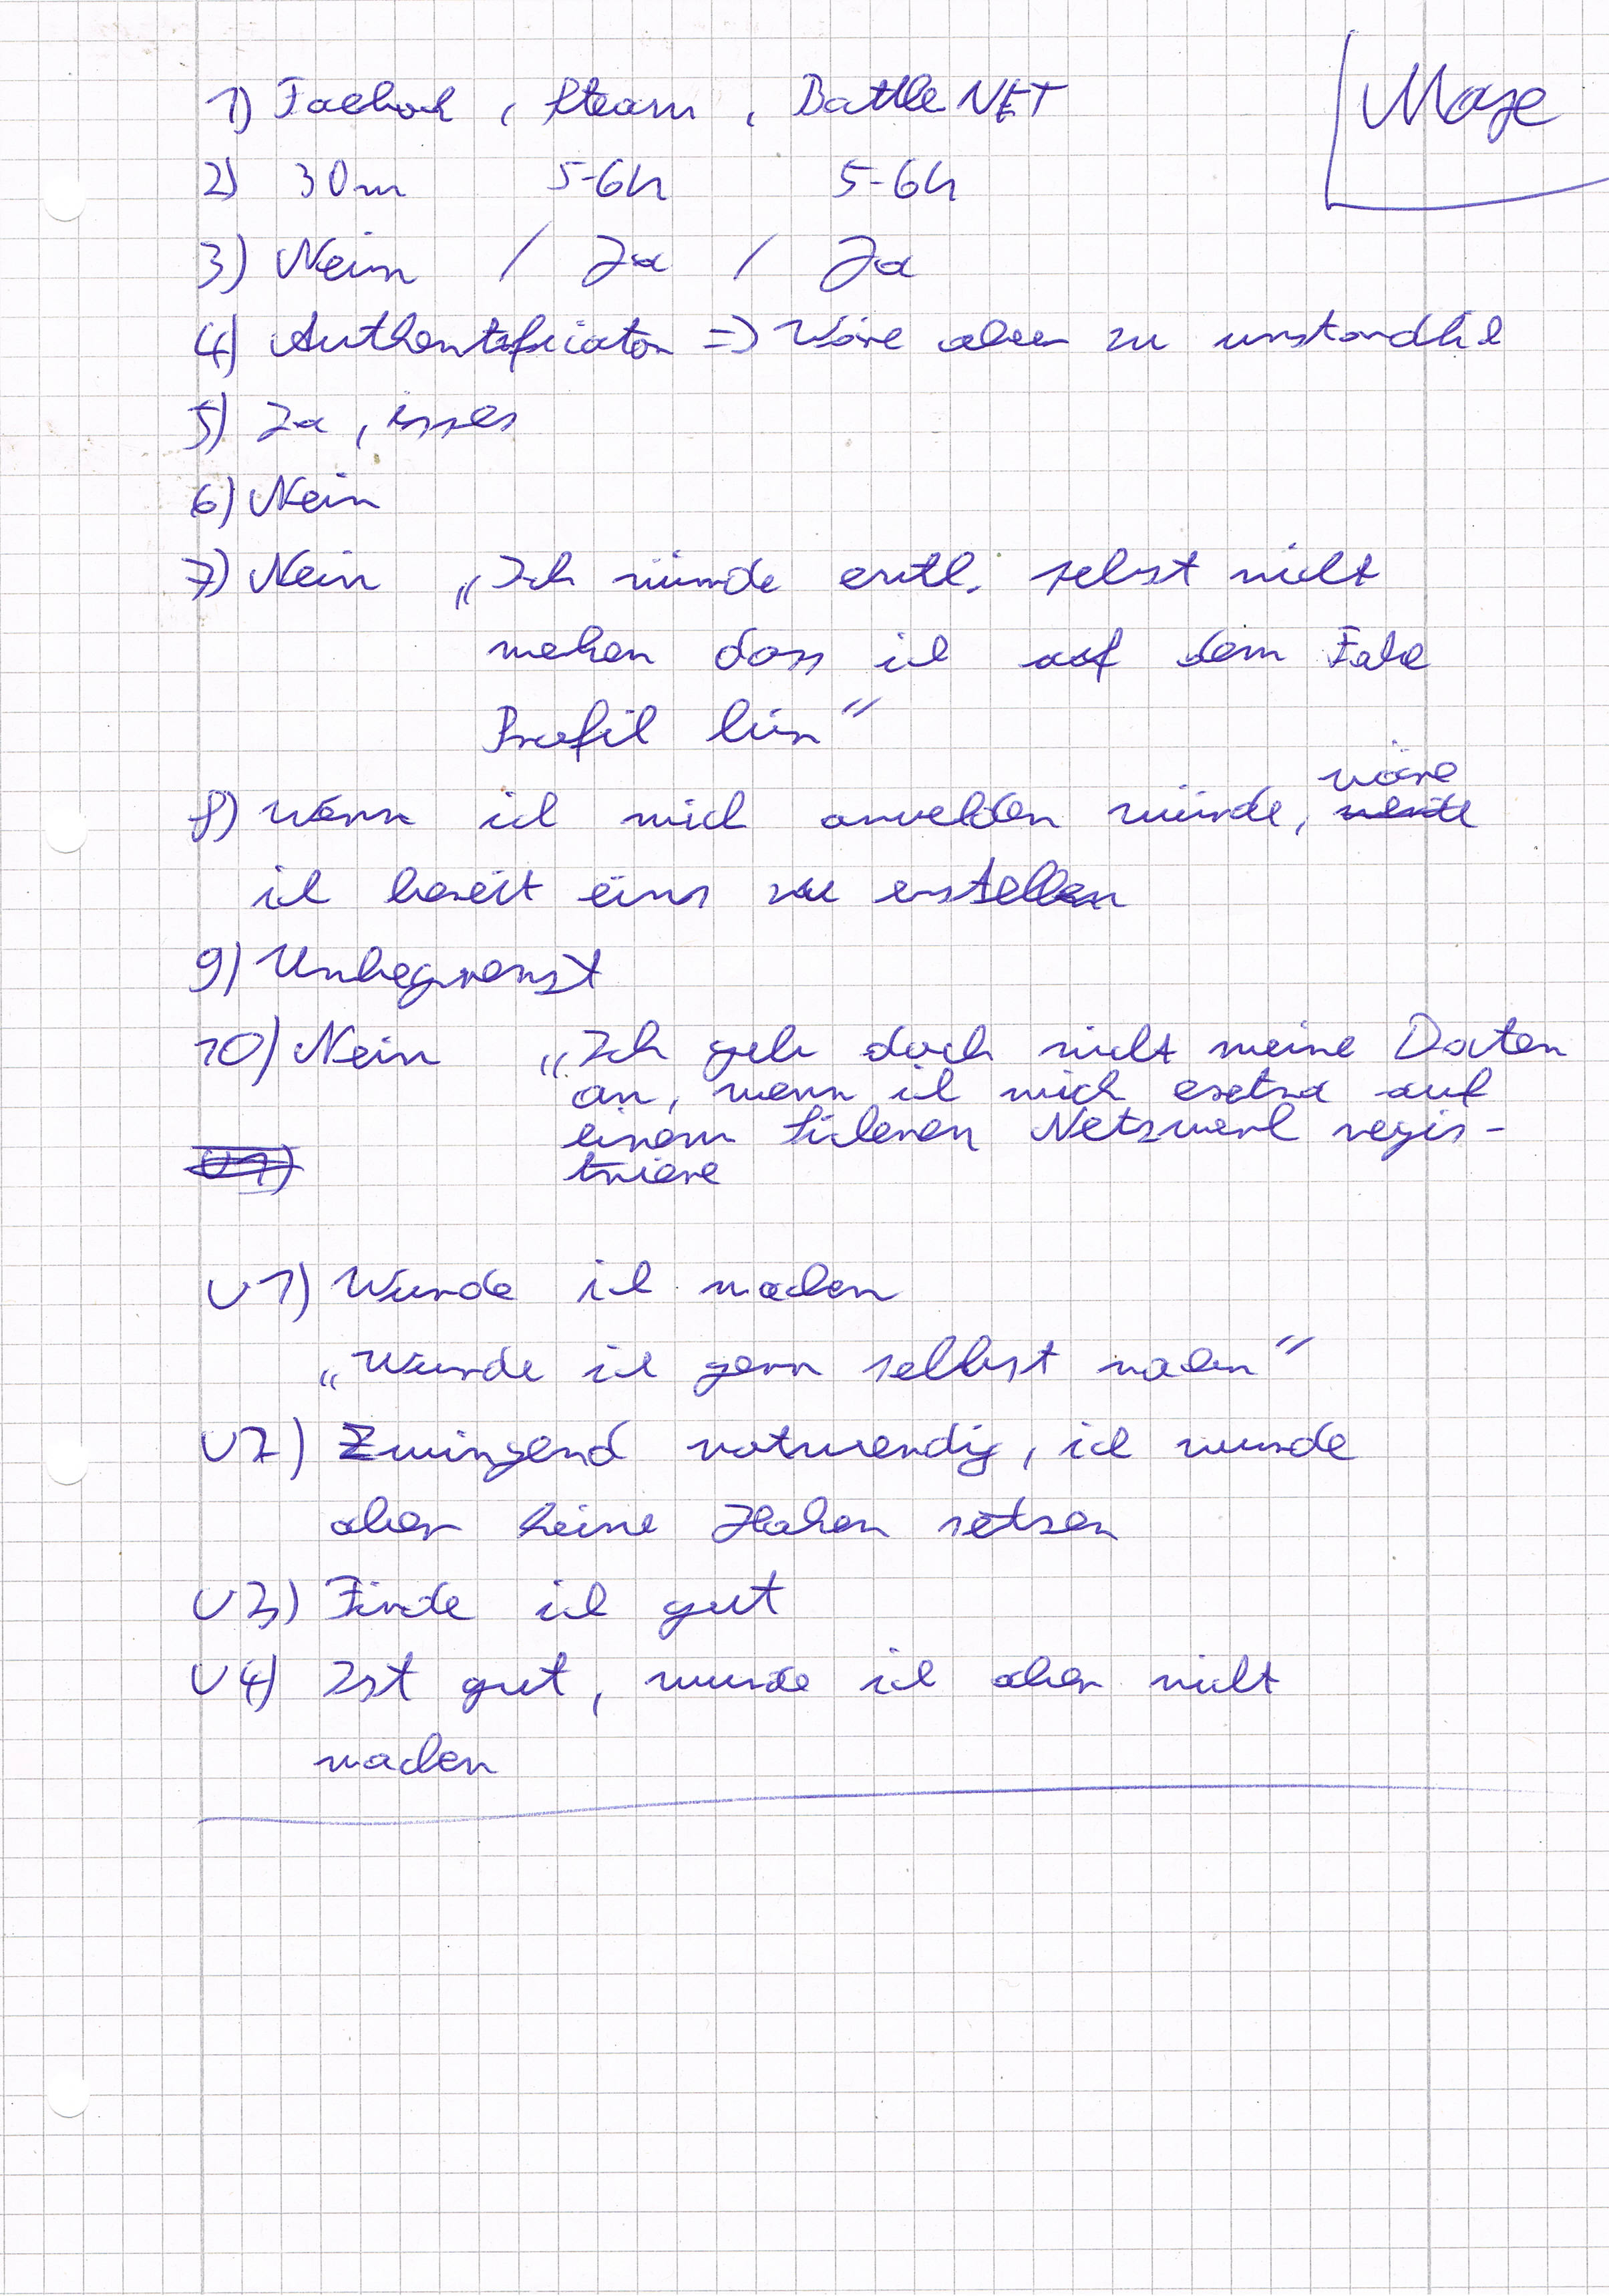 Maze
1) Facebook, Steam, Battle NET
2) 30m 5-6h 5-6h
3) Nein / Ja / Ja
4) Authentificator => Wäre aber zu umständlich
5) Ja, isses
6) Nein
7) Nein „Ich würde evtl. selbst nicht
merken dass ich auf dem Fake
Profil bin“
8) Wenn ich mich anmelden würde, wäre
ich bereit eins zu erstellen
9) Unbegrenzt
10) Nein „Ich geb doch nicht meine Daten
an, wenn ich mich extra auf
einem sicheren Netzwerk regis-
triere
U1) Wurde ich machen
„Wurde ich gern selbst machen“
U2) Zwingend notwendig, ich wurde
aber keine Haken setzen
U3) Finde ich gut
U4) Ist gut, wurde ich aber nicht
machen